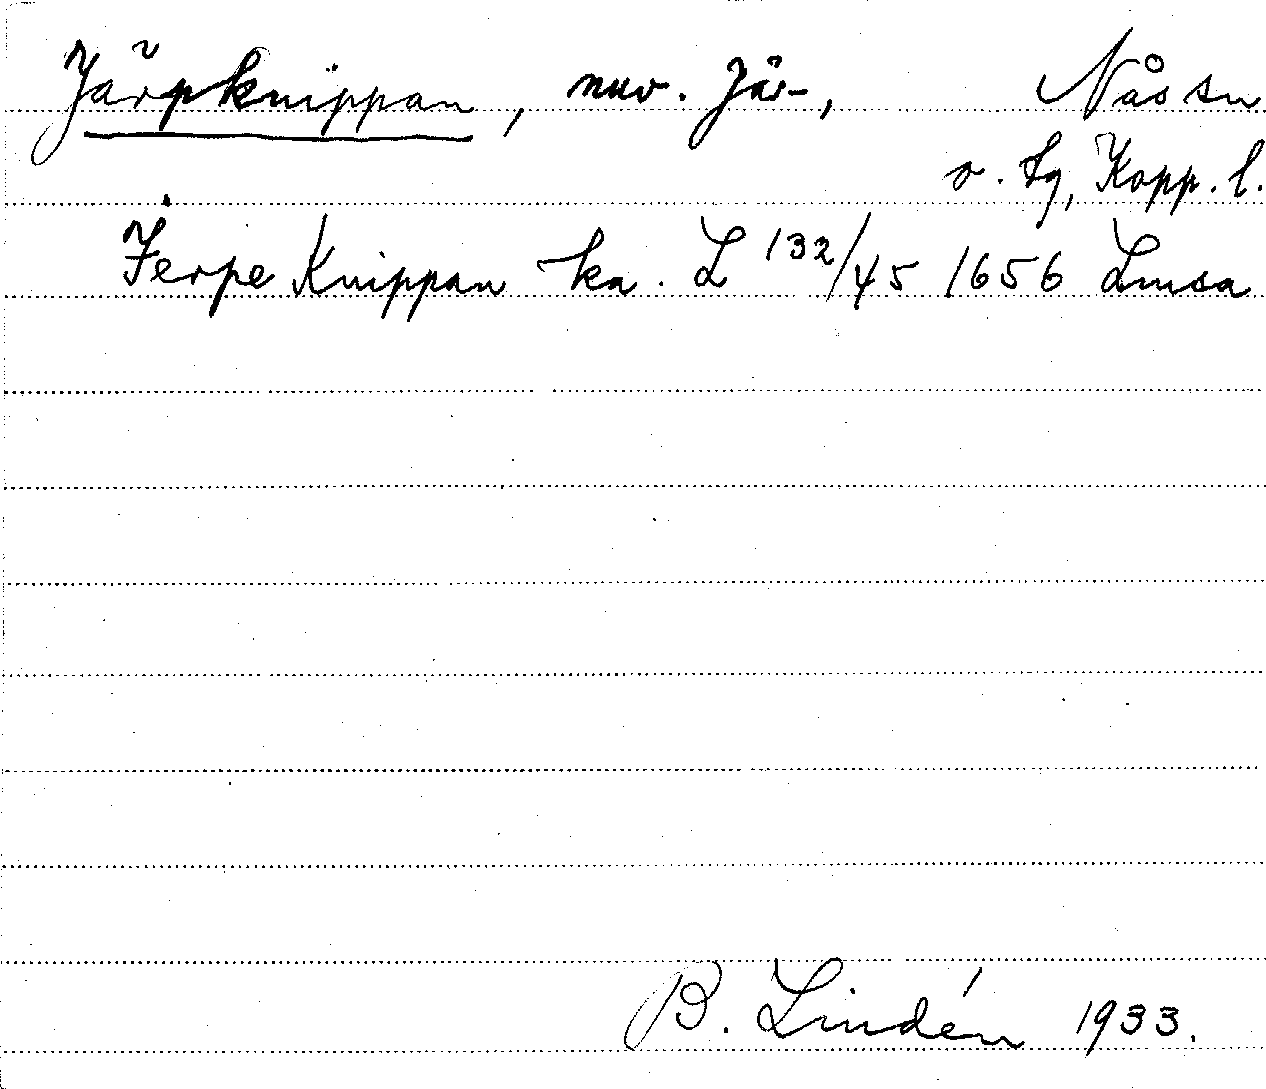 Järpknippan, nuv. Jär-, Nås sn
o. tg, Kopp. l.
Jerpe Knippan ka. L 132/45 1656 Lmsa
B. Lindén 1933.